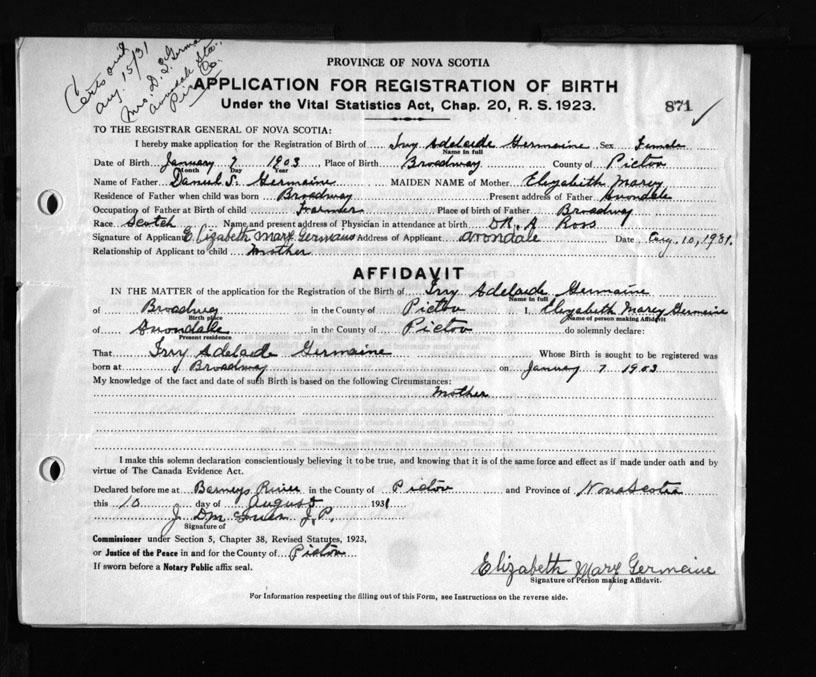 Certs sent
Aug. 15/31
Mrs. D. S. Germaine
Avondale Sta.,
Pictou Co.
PROVINCE OF NOVA SCOTIA
APPLICATION FOR REGISTRATION OF BIRTH
Under the Vital Statistics Act, Chap. 20, R. S. 1923.
871 ✓
TO THE REGISTRAR GENERAL OF NOVA SCOTIA:
I hereby make application for the Registration of Birth of Adelaide Germaine Sex Female
Name in full
Date of Birth January 7 1903 Place of Birth Broadway County of Pictou
Month Day Year
Name of Father Daniel S. Germaine MAIDEN NAME of Mother Elizabeth
Residence of Father when child was born Broadway Present address of Father Avondale
Occupation of Father at Birth of child Farmer Place of birth of Father Broadway
Race Scotch Name and present address of Physician in attendance at birth DR. A Ross
Signature of Applicant Elizabeth Mary Germaine Address of Applicant Avondale Date Aug. 10, 1931.
Relationship of Applicant to child Mother
AFFIDAVIT
IN THE MATTER of the application for the Registration of the Birth of Adelaide Germaine
Name in full
of Broadway in the County of Pictou I, Elizabeth Mary Germaine
Birth place Name of person making Affidavit
of Avondale in the County of Pictou do solemnly declare:
Present residence
That Adelaide Germaine Whose Birth is sought to be registered was
born at Broadway on January 7 1903
My knowledge of the fact and date of such Birth is based on the following Circumstances:
Mother
I make this solemn declaration conscientiously believing it to be true, and knowing that it is of the same force and effect as if made under oath and by
virtue of The Canada Evidence Act.
Declared before me at Barneys River in the County of Pictou and Province of Nova Scotia
this 10 day of August 1931
J. P.
Signature of
Commissioner under Section 5, Chapter 38, Revised Statutes, 1923,
or Justice of the Peace in and for the County of Pictou
If sworn before a Notary Public affix seal.
Elizabeth Mary Germaine
Signature of Person making Affidavit.
For Information respecting the filling out of this Form, see Instructions on the reverse side.